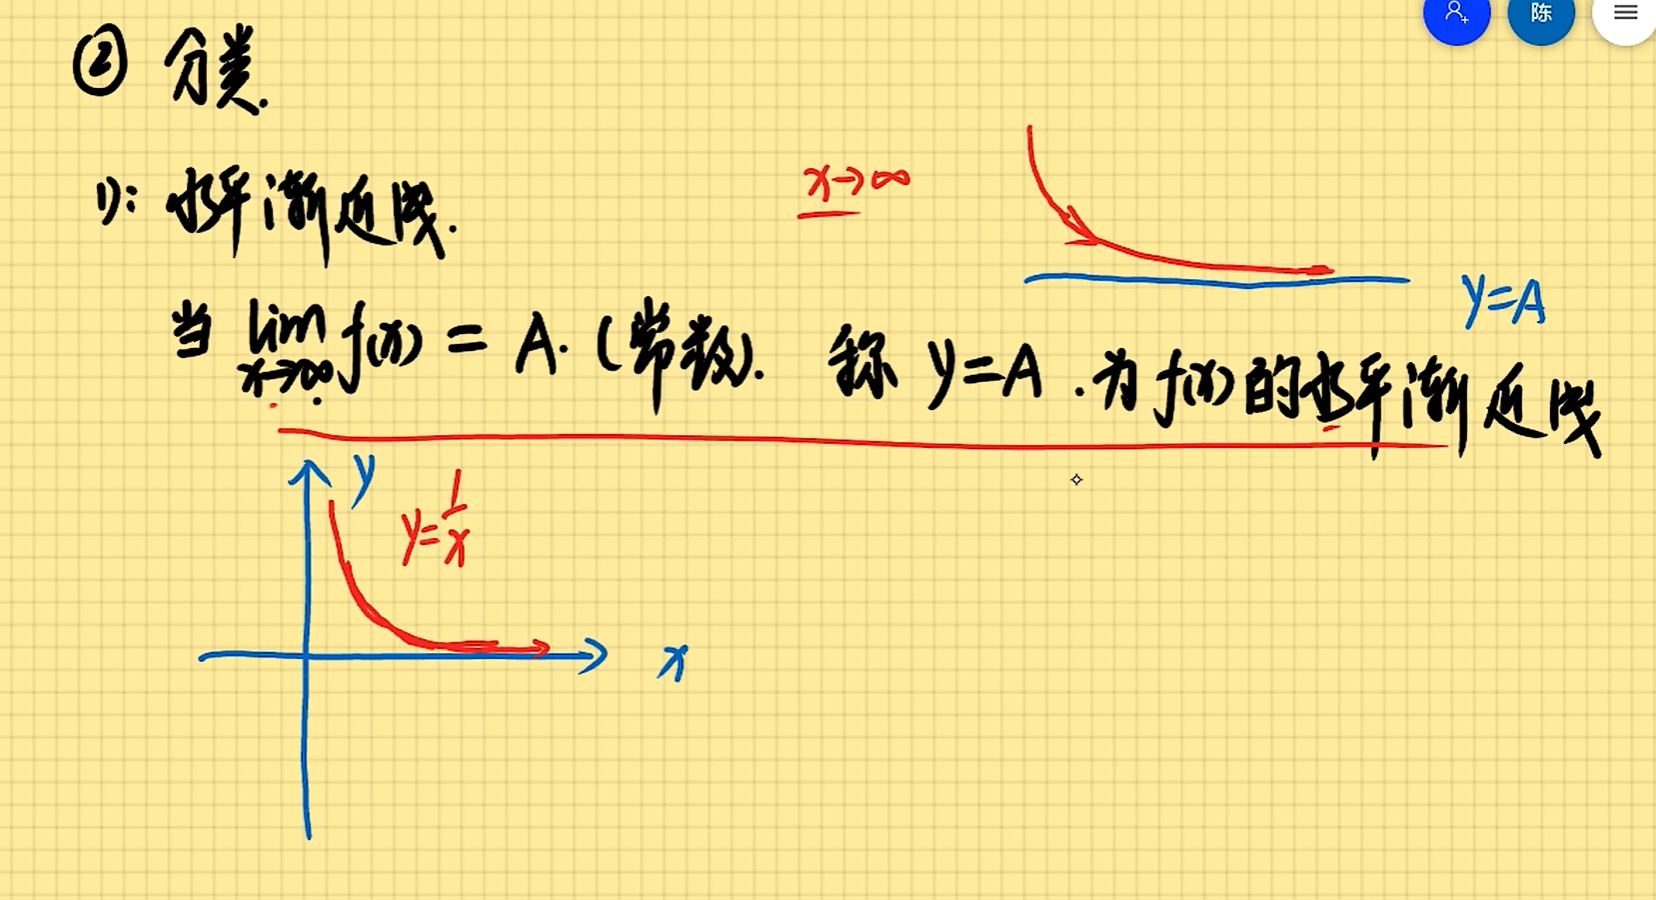 陈
② 分类.
1): 水平渐近线.
x→∞
y=A
当 lim x→∞ f(x) = A. (常数). 称 y=A. 为 f(x) 的水平渐近线
y
y=1/x
x